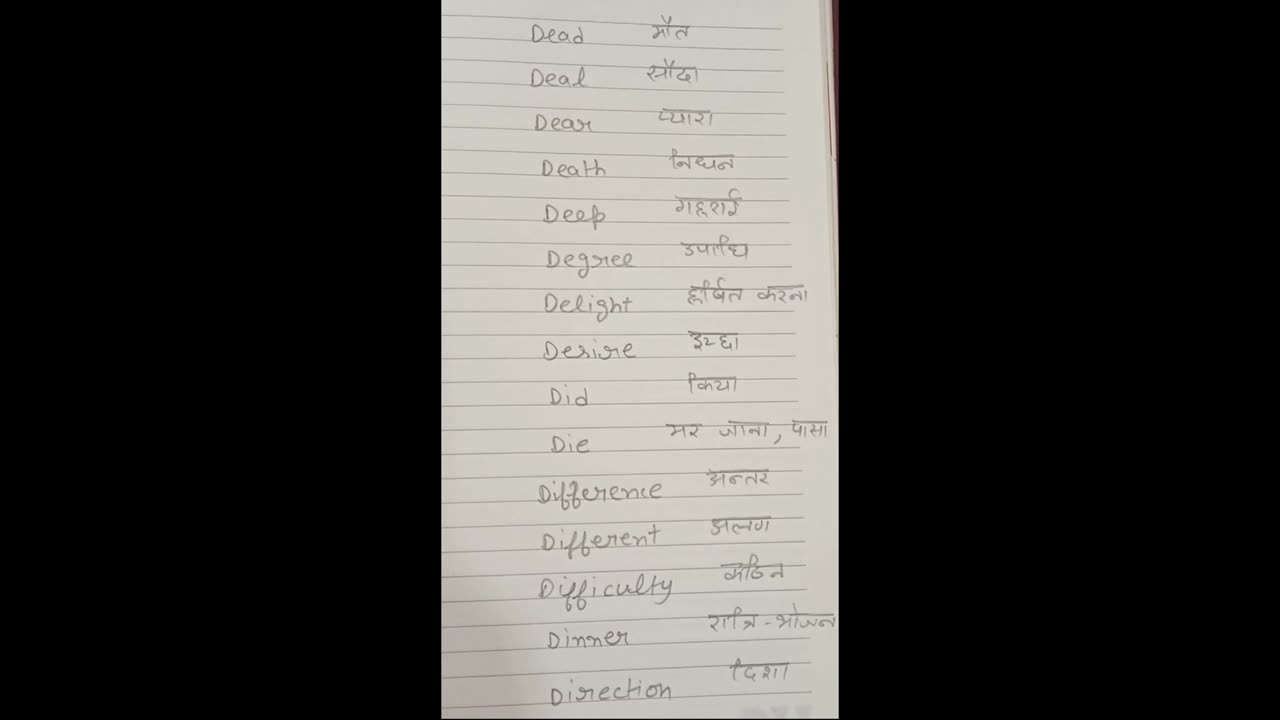 Dead मौत
Deal सौदा
Dear प्यारा
Death निधन
Deep गहराई
Degree उपाधि
Delight हर्षित करना
Desire इच्छा
Did किया
Die मर जाना, पासा
Difference अन्तर
Different अलग
Difficulty कठिन
Dinner रात्रि-भोजन
Direction दिशा